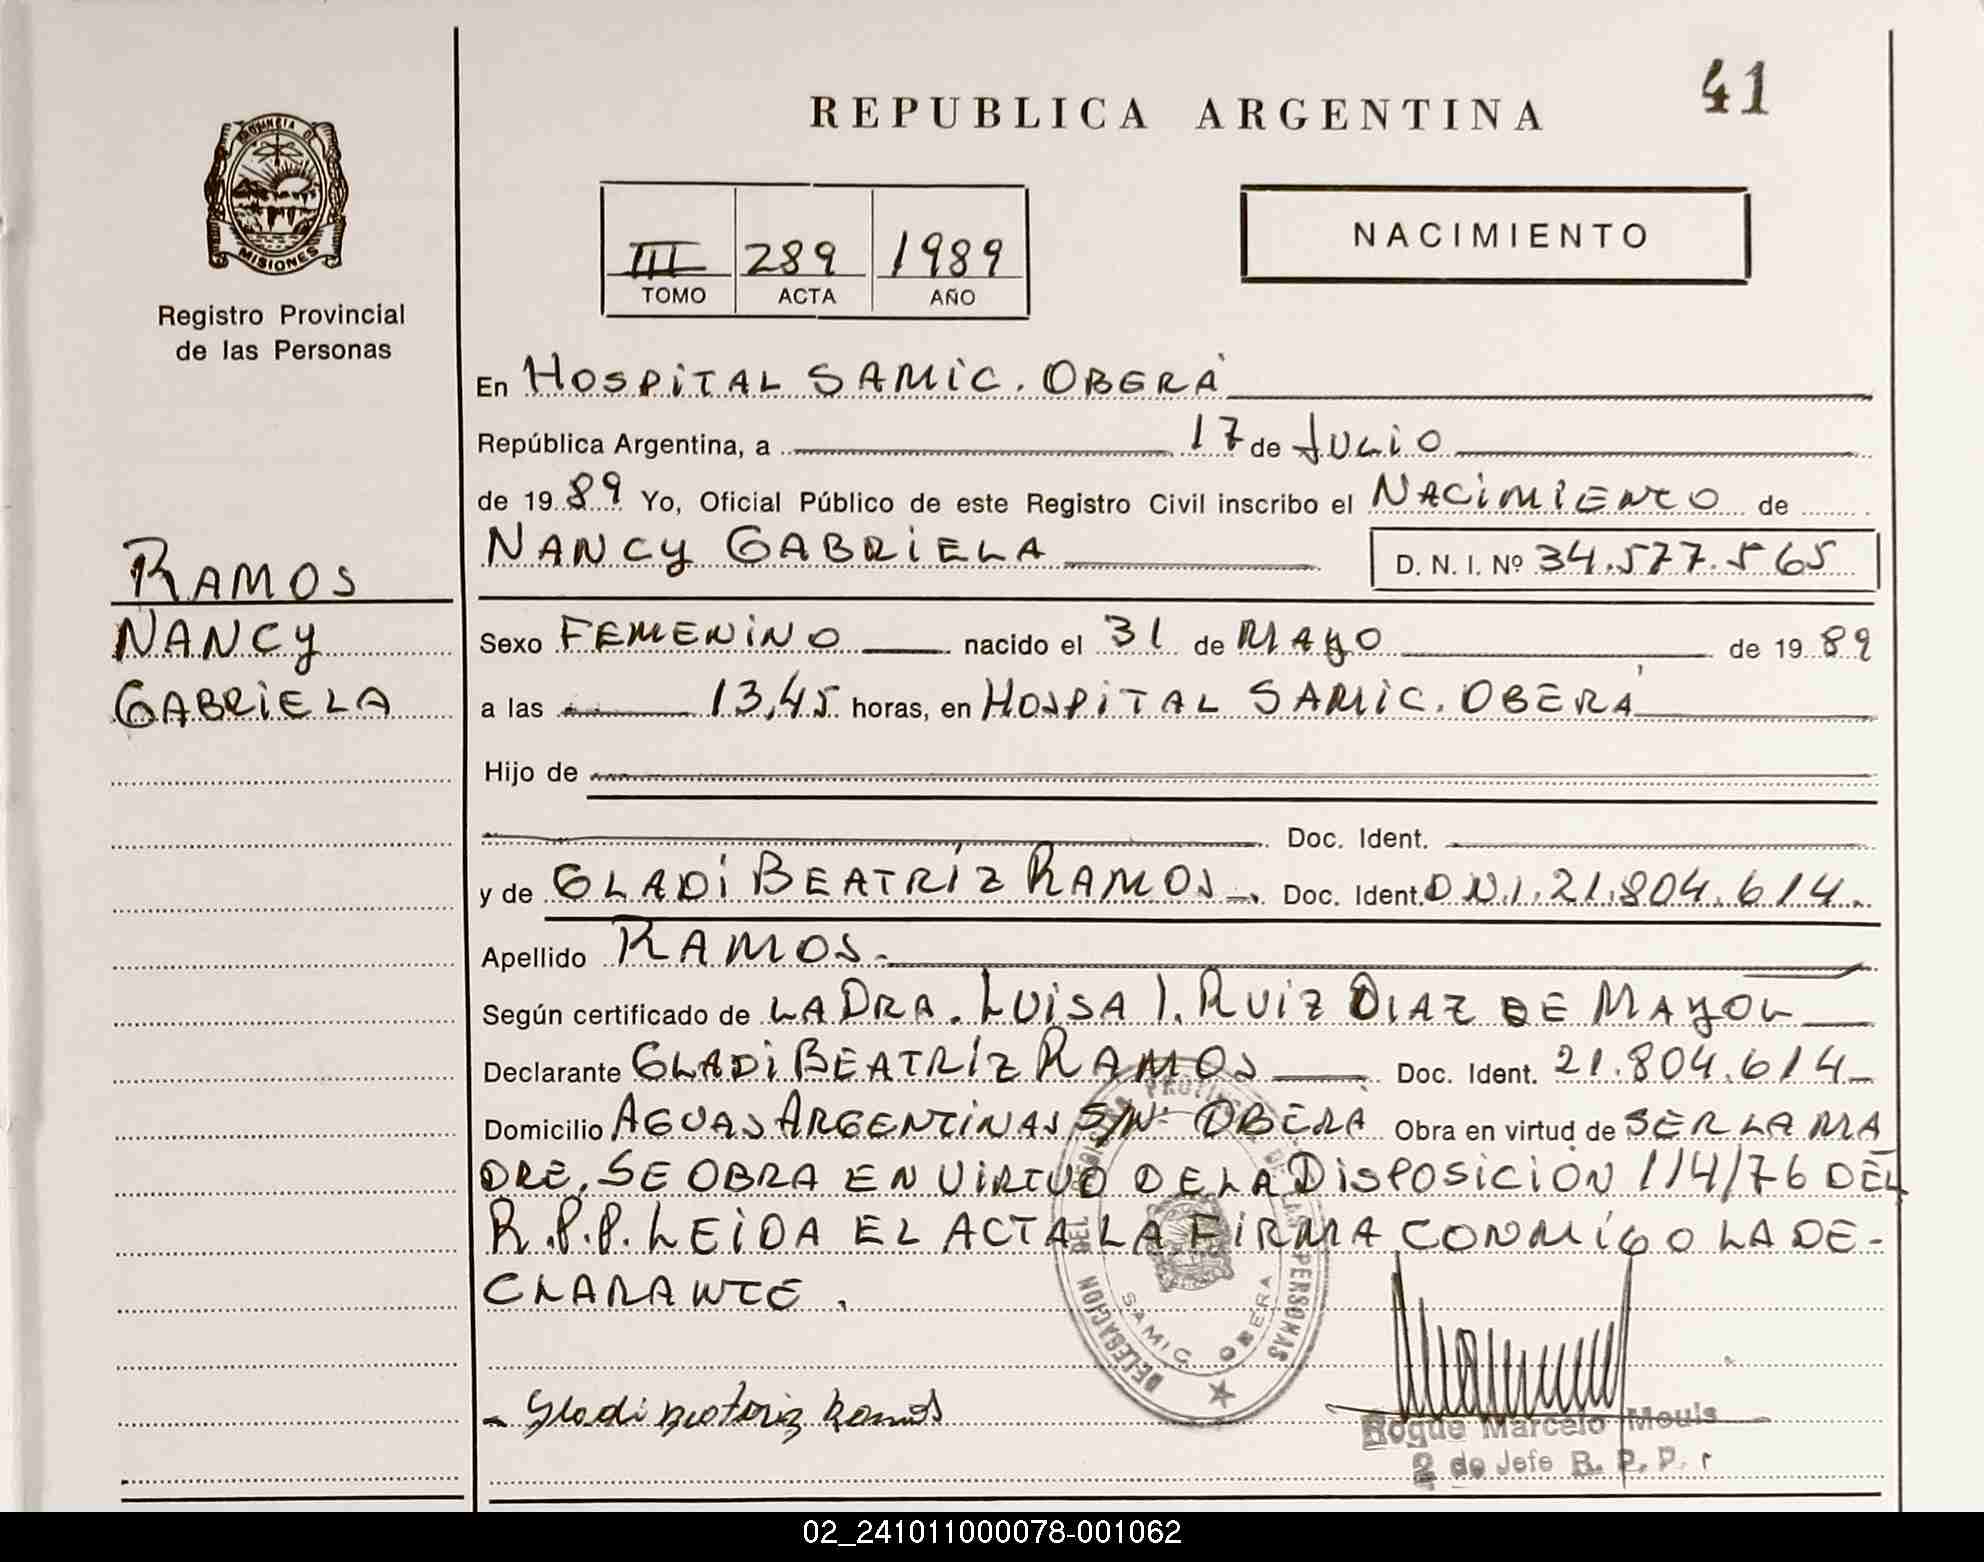 REPUBLICA ARGENTINA
41
PROVINCIA DE
MISIONES
Registro Provincial
de las Personas
III 289 1989
TOMO ACTA AÑO
NACIMIENTO
En HOSPITAL SAMIC. OBERÁ
República Argentina, a 17 de JULIO
de 1989 Yo, Oficial Público de este Registro Civil inscribo el NACIMIENTO de
NANCY GABRIELA D. N. I. Nº 34.577.565
RAMOS
NANCY
GABRIELA
Sexo FEMENINO nacido el 31 de MAYO de 1989
a las 13,45 horas, en HOSPITAL SAMIC. OBERÁ
Hijo de
Doc. Ident.
y de GLADI BEATRÍZ RAMOS.- Doc. Ident. D.N.I. 21.804.614.
Apellido RAMOS.-
Según certificado de LA DRA. LUISA I. RUIZ DIAZ DE MAYOL
Declarante GLADI BEATRÍZ RAMOS Doc. Ident. 21.804.614-
Domicilio AGUAS ARGENTINAS S/Nº OBERÁ Obra en virtud de SER LA MA
DRE. SE OBRA EN VIRTUD DE LA DISPOSICIÓN 114/76 DEL
R.P.P. LEIDA EL ACTA LA FIRMA CONMIGO LA DE-
CLARANTE.
DELEGACION DEL REGISTRO PROVINCIAL DE LAS PERSONAS
SAMIC OBERA
- Gladi Beatriz Ramos
Roque Marcelo Meuls
2 do Jefe R. P. P.
02_241011000078-001062